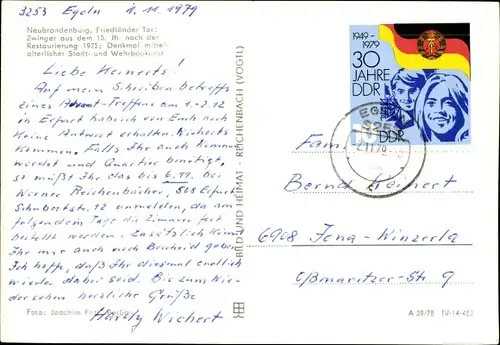 3253 Egeln 1.11.1979
Neubrandenburg, Friedländer Tor:
Zwinger aus dem 15. Jh. nach der
Restaurierung 1975; Denkmal mittel-
alterlicher Stadt- und Wehrbaukunst
Liebe Heinerts!
Auf mein Schreiben betreffs
eines Advent-Treffens am 1.-2.12
in Erfurt habe ich von Euch noch
keine Antwort erhalten. Wicherts
kommen. Falls Ihr auch kommen
werdet und Quartier benötigt,
so müßt Ihr das bis 6.11. bei
Werner Reichenbächer, 508 Erfurt
Schubertstr. 12 anmelden, da am
folgendem Tage die Zimmer fest
bestellt werden. Zusätzlich könnt
Ihr mir auch noch Bescheid geben.
Ich hoffe, daß Ihr diesmal endlich
wieder dabei seid. Bis zum Wie-
dersehen herzliche Grüße
Hardy Wichert
Foto: Joachim Berlin
BILD UND HEIMAT REICHENBACH (VOGTL)
1949-
1979
30
JAHRE
DDR
DDR
EGELN
3253
Fam.
Bernd Heinert
6908 Jena-Winzerla
Oßmaritzer-Str. 9
A 39/78 IV-14-483